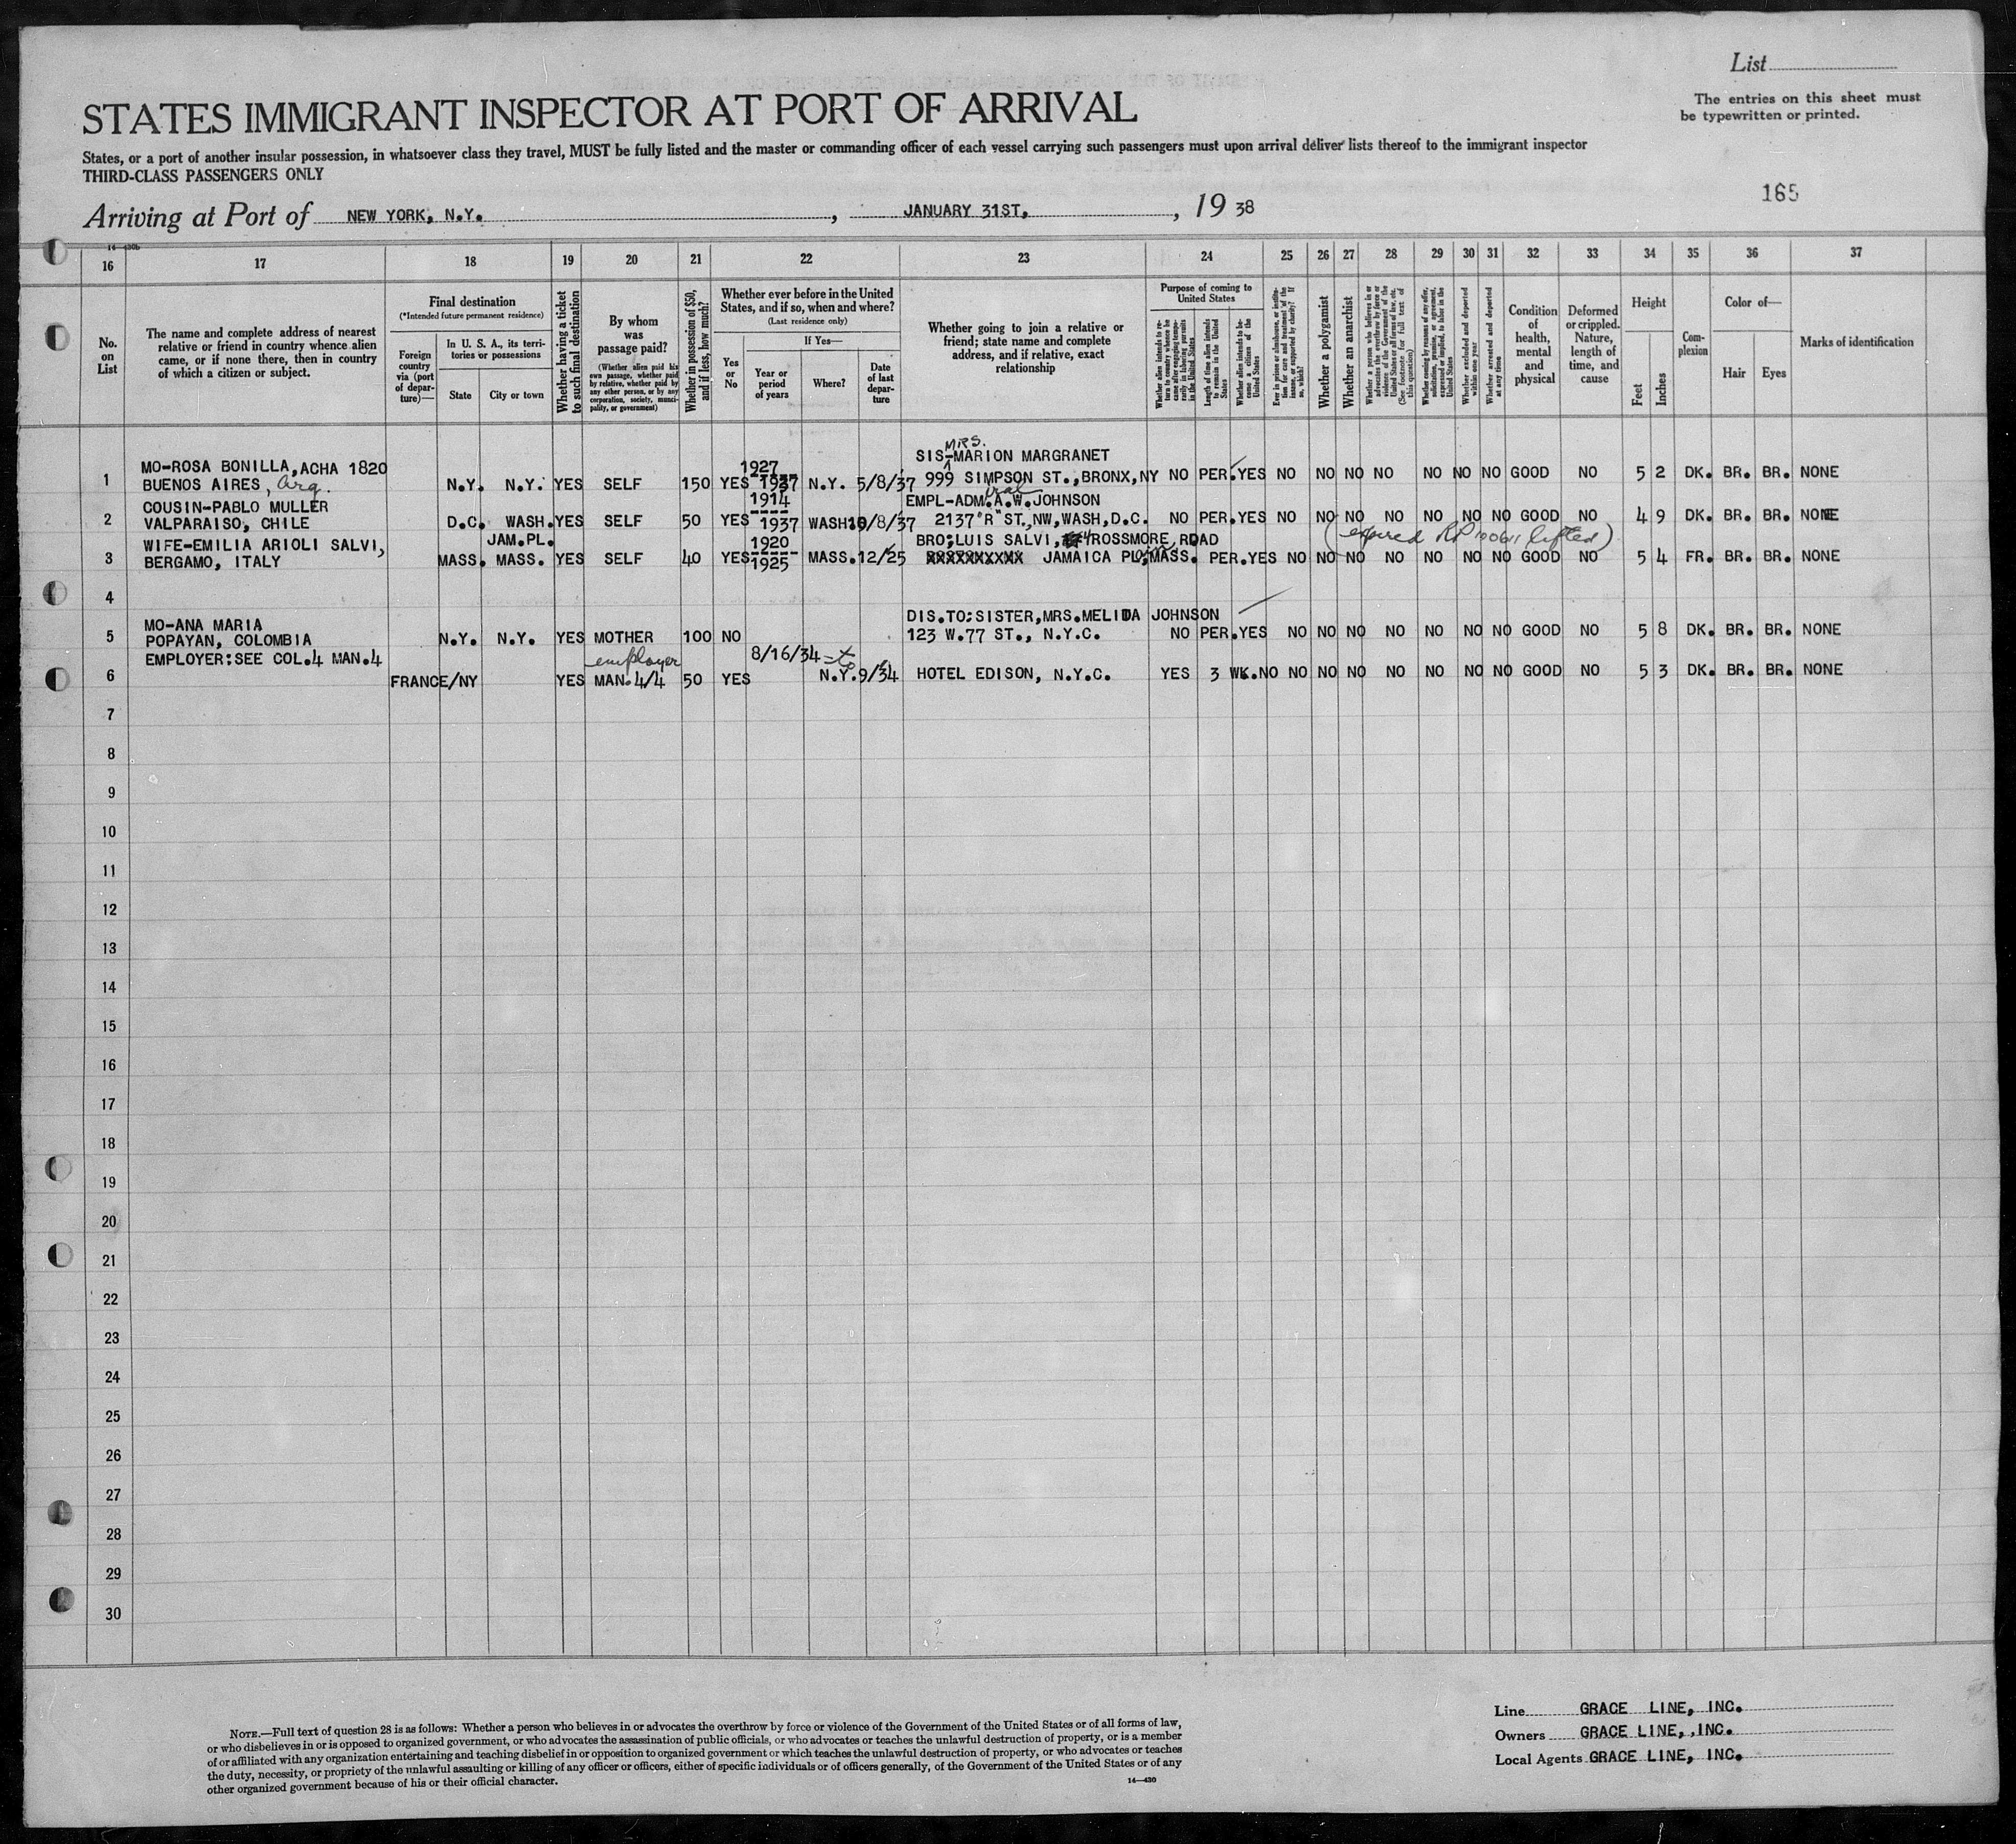 List
The entries on this sheet must
be typewritten or printed.
STATES IMMIGRANT INSPECTOR AT PORT OF ARRIVAL
States, or a port of another insular possession, in whatsoever class they travel, MUST be fully listed and the master or commanding officer of each vessel carrying such passengers must upon arrival deliver lists thereof to the immigrant inspector
THIRD-CLASS PASSENGERS ONLY
165
Arriving at Port of NEW YORK, N.Y., JANUARY 31ST, , 19 38
14-430b
16 17 18 19 20 21 22 23 24 25 26 27 28 29 30 31 32 33 34 35 36 37
No. on List
The name and complete address of nearest
relative or friend in country whence alien
came, or if none there, then in country
of which a citizen or subject.
Final destination
(*Intended future permanent residence)
Foreign country via (port of departure)—
In U. S. A., its territories or possessions
State
City or town
Whether having a ticket to such final destination
By whom was passage paid?
(Whether alien paid his own passage, whether paid by relative, whether paid by any other person, or by any corporation, society, municipality, or government)
Whether in possession of $50, and if less, how much?
Whether ever before in the United States, and if so, when and where?
(Last residence only)
Yes or No
If Yes—
Year or period of years
Where?
Date of last departure
Whether going to join a relative or
friend; state name and complete
address, and if relative, exact
relationship
Purpose of coming to United States
Whether alien intends to return to country whence he came after engaging temporarily in laboring pursuits in the United States
Length of time alien intends to remain in the United States
Whether alien intends to become a citizen of the United States
Ever in prison or almshouse, or institution for care and treatment of the insane, or supported by charity? If so, which?
Whether a polygamist
Whether an anarchist
Whether a person who believes in or advocates the overthrow by force or violence of the Government of the United States or all forms of law, etc. (See footnote for full text of this question)
Whether coming by reasons of any offer, solicitation, promise, or agreement, expressed or implied, to labor in the United States
Whether excluded and deported within one year
Whether arrested and deported at any time
Condition of health, mental and physical
Deformed or crippled. Nature, length of time, and cause
Height
Feet
Inches
Complexion
Color of—
Hair
Eyes
Marks of identification
MRS.
MO-ROSA BONILLA, ACHA 1820 1927 SIS-MARION MARGRANET
1 BUENOS AIRES, Arg. N.Y. N.Y. YES SELF 150 YES 1937 N.Y. 5/8/37 999 SIMPSON ST., BRONX, NY NO PER. YES NO NO NO NO NO NO NO GOOD NO 5 2 DK. BR. BR. NONE
COUSIN-PABLO MULLER 1914 EMPL-ADM. A.W. JOHNSON
2 VALPARAISO, CHILE D.C. WASH. YES SELF 50 YES 1937 WASH 10/8/37 2137 "R" ST., NW, WASH, D.C. NO PER. YES NO NO NO NO NO NO NO GOOD NO 4 9 DK. BR. BR. NONE
WIFE-EMILIA ARIOLI SALVI, JAM.PL. 1920 BRO: LUIS SALVI, 4 ROSSMORE ROAD (expired RP lifted)
3 BERGAMO, ITALY MASS. MASS. YES SELF 40 YES 1925 MASS. 12/25 XXXXXXXXXX JAMAICA PLAIN, MASS. PER. YES NO NO NO NO NO NO NO GOOD NO 5 4 FR. BR. BR. NONE
4
MO-ANA MARIA DIS.TO: SISTER, MRS. MELIDA JOHNSON
5 POPAYAN, COLOMBIA N.Y. N.Y. YES MOTHER 100 NO 123 W. 77 ST., N.Y.C. NO PER. YES NO NO NO NO NO NO NO GOOD NO 5 8 DK. BR. BR. NONE
EMPLOYER: SEE COL. 4 MAN. 4 employer 8/16/34 - to
6 FRANCE/NY YES MAN. 4/4 50 YES N.Y. 9/34 HOTEL EDISON, N.Y.C. YES 3 WK. NO NO NO NO NO NO NO NO GOOD NO 5 3 DK. BR. BR. NONE
7
8
9
10
11
12
13
14
15
16
17
18
19
20
21
22
23
24
25
26
27
28
29
30
NOTE.—Full text of question 28 is as follows: Whether a person who believes in or advocates the overthrow by force or violence of the Government of the United States or of all forms of law,
or who disbelieves in or is opposed to organized government, or who advocates the assassination of public officials, or who advocates or teaches the unlawful destruction of property, or is a member
of or affiliated with any organization entertaining and teaching disbelief in or opposition to organized government or which teaches the unlawful destruction of property, or who advocates or teaches
the duty, necessity, or propriety of the unlawful assaulting or killing of any officer or officers, either of specific individuals or of officers generally, of the Government of the United States or of any
other organized government because of his or their official character.
14—430
Line GRACE LINE, INC.
Owners GRACE LINE, INC.
Local Agents GRACE LINE, INC.